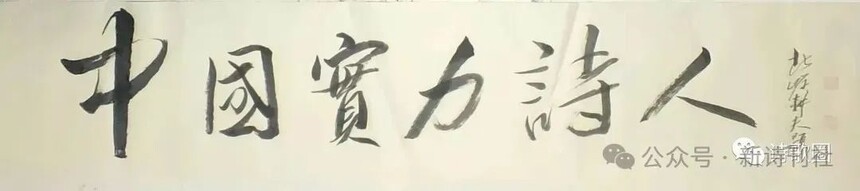 中國實力詩人
公众号·新诗刊社